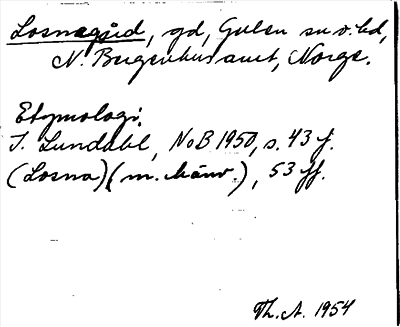 Losnagård, gd, Gulen sn o. hd,
N. Bergenhus amt, Norge.
Etymologi:
I. Lundahl, NoB 1950, s. 43 f.
(Losna) (m. hänv.), 53 ff.
Th. A. 1954